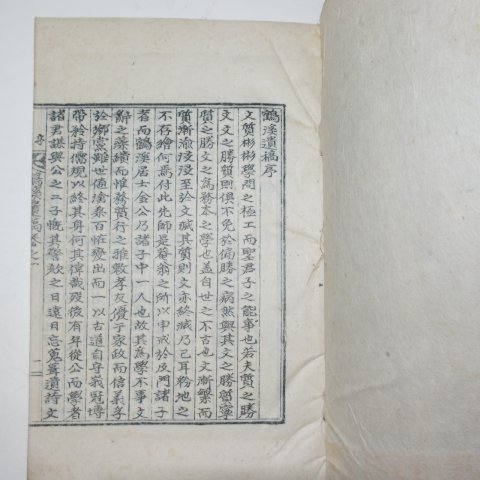 鶴溪遺稿序
文質彬彬學問之極工而聖君子之能事也若夫質之勝
文文之勝質則俱不免於偏勝之病然與其文之勝質寧
質之勝文之爲務本之學也盖自世之不古也文漸繁而
質漸淪浸浸至於文滅其質則文亦終滅乃已耳粉地之
不存繪何焉付此先師是菴翁之所以申戒於及門諸子
者而鶴溪居士金公乃諸子中一人也故其爲學不事文
辭之藻繢而惟務實行之推敦孝友優于家政而信義孚
於鄉黨難世値搶桑百惟變出而一以古道自守峩冠博
帶矜持儒規以終其身何其偉哉歿後有年從公而學者
諸君謀與公之二子慨其聲欬之日遠日忘蒐輯遺詩文
序
鶴溪遺稿卷之一
二